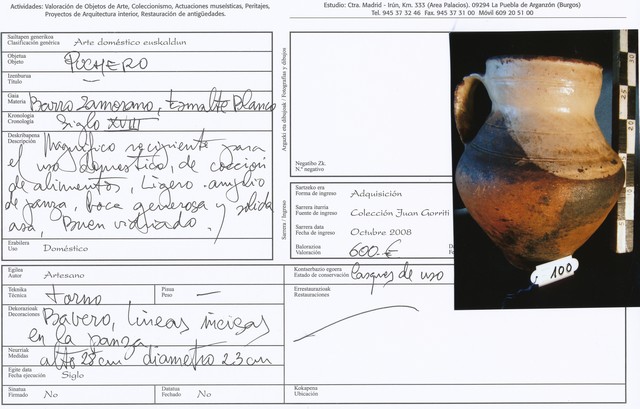 Actividades: Valoración de Objetos de Arte, Coleccionismo, Actuaciones museísticas, Peritajes,
Proyectos de Arquitectura interior, Restauración de antigüedades.
Estudio: Ctra. Madrid - Irún, Km. 333 (Area Palacios). 09294 La Puebla de Arganzón (Burgos)
Tel. 945 37 32 46 Fax. 945 37 31 00 Móvil 609 20 51 00
Sailtapen generikoa
Clasificación genérica Arte doméstico euskaldun
Objetua
Objeto PUCHERO
Izenburua
Título —
Gaia
Materia Barro Zamorano, Esmalte Blanco
Kronologia
Cronología Siglo XVIII
Deskribapena
Descripción Magnífico recipiente para
el uso domestico, de cocción
de alimentos, Ligero. amplio
de panza, boca generosa y solida
asa, Buen vidriado.
Erabilera
Uso Doméstico
Egilea
Autor Artesano
Teknika
Técnica torno
Pisua
Peso —
Dekorazioak
Decoraciones Bavero, líneas incisas
en la panza
Neurriak
Medidas alto 28 cm diametro 23 cm
Egite data
Fecha ejecución Siglo
Sinatua
Firmado No
Datatua
Fechado No
Argazki eta dibujoak / Fotografías y dibujos
Negatibo Zk.
N.º negativo
Sarrera / Ingreso
Sartzeko era
Forma de ingreso Adquisición
Sarrera iturria
Fuente de ingreso Colección Juan Gorriti
Sarrera data
Fecha de ingreso Octubre 2008
Balorazioa
Valoración 600 €
Kontserbazio egoera
Estado de conservación lasques de uso
Errestaurazioak
Restauraciones
Kokapena
Ubicación
100